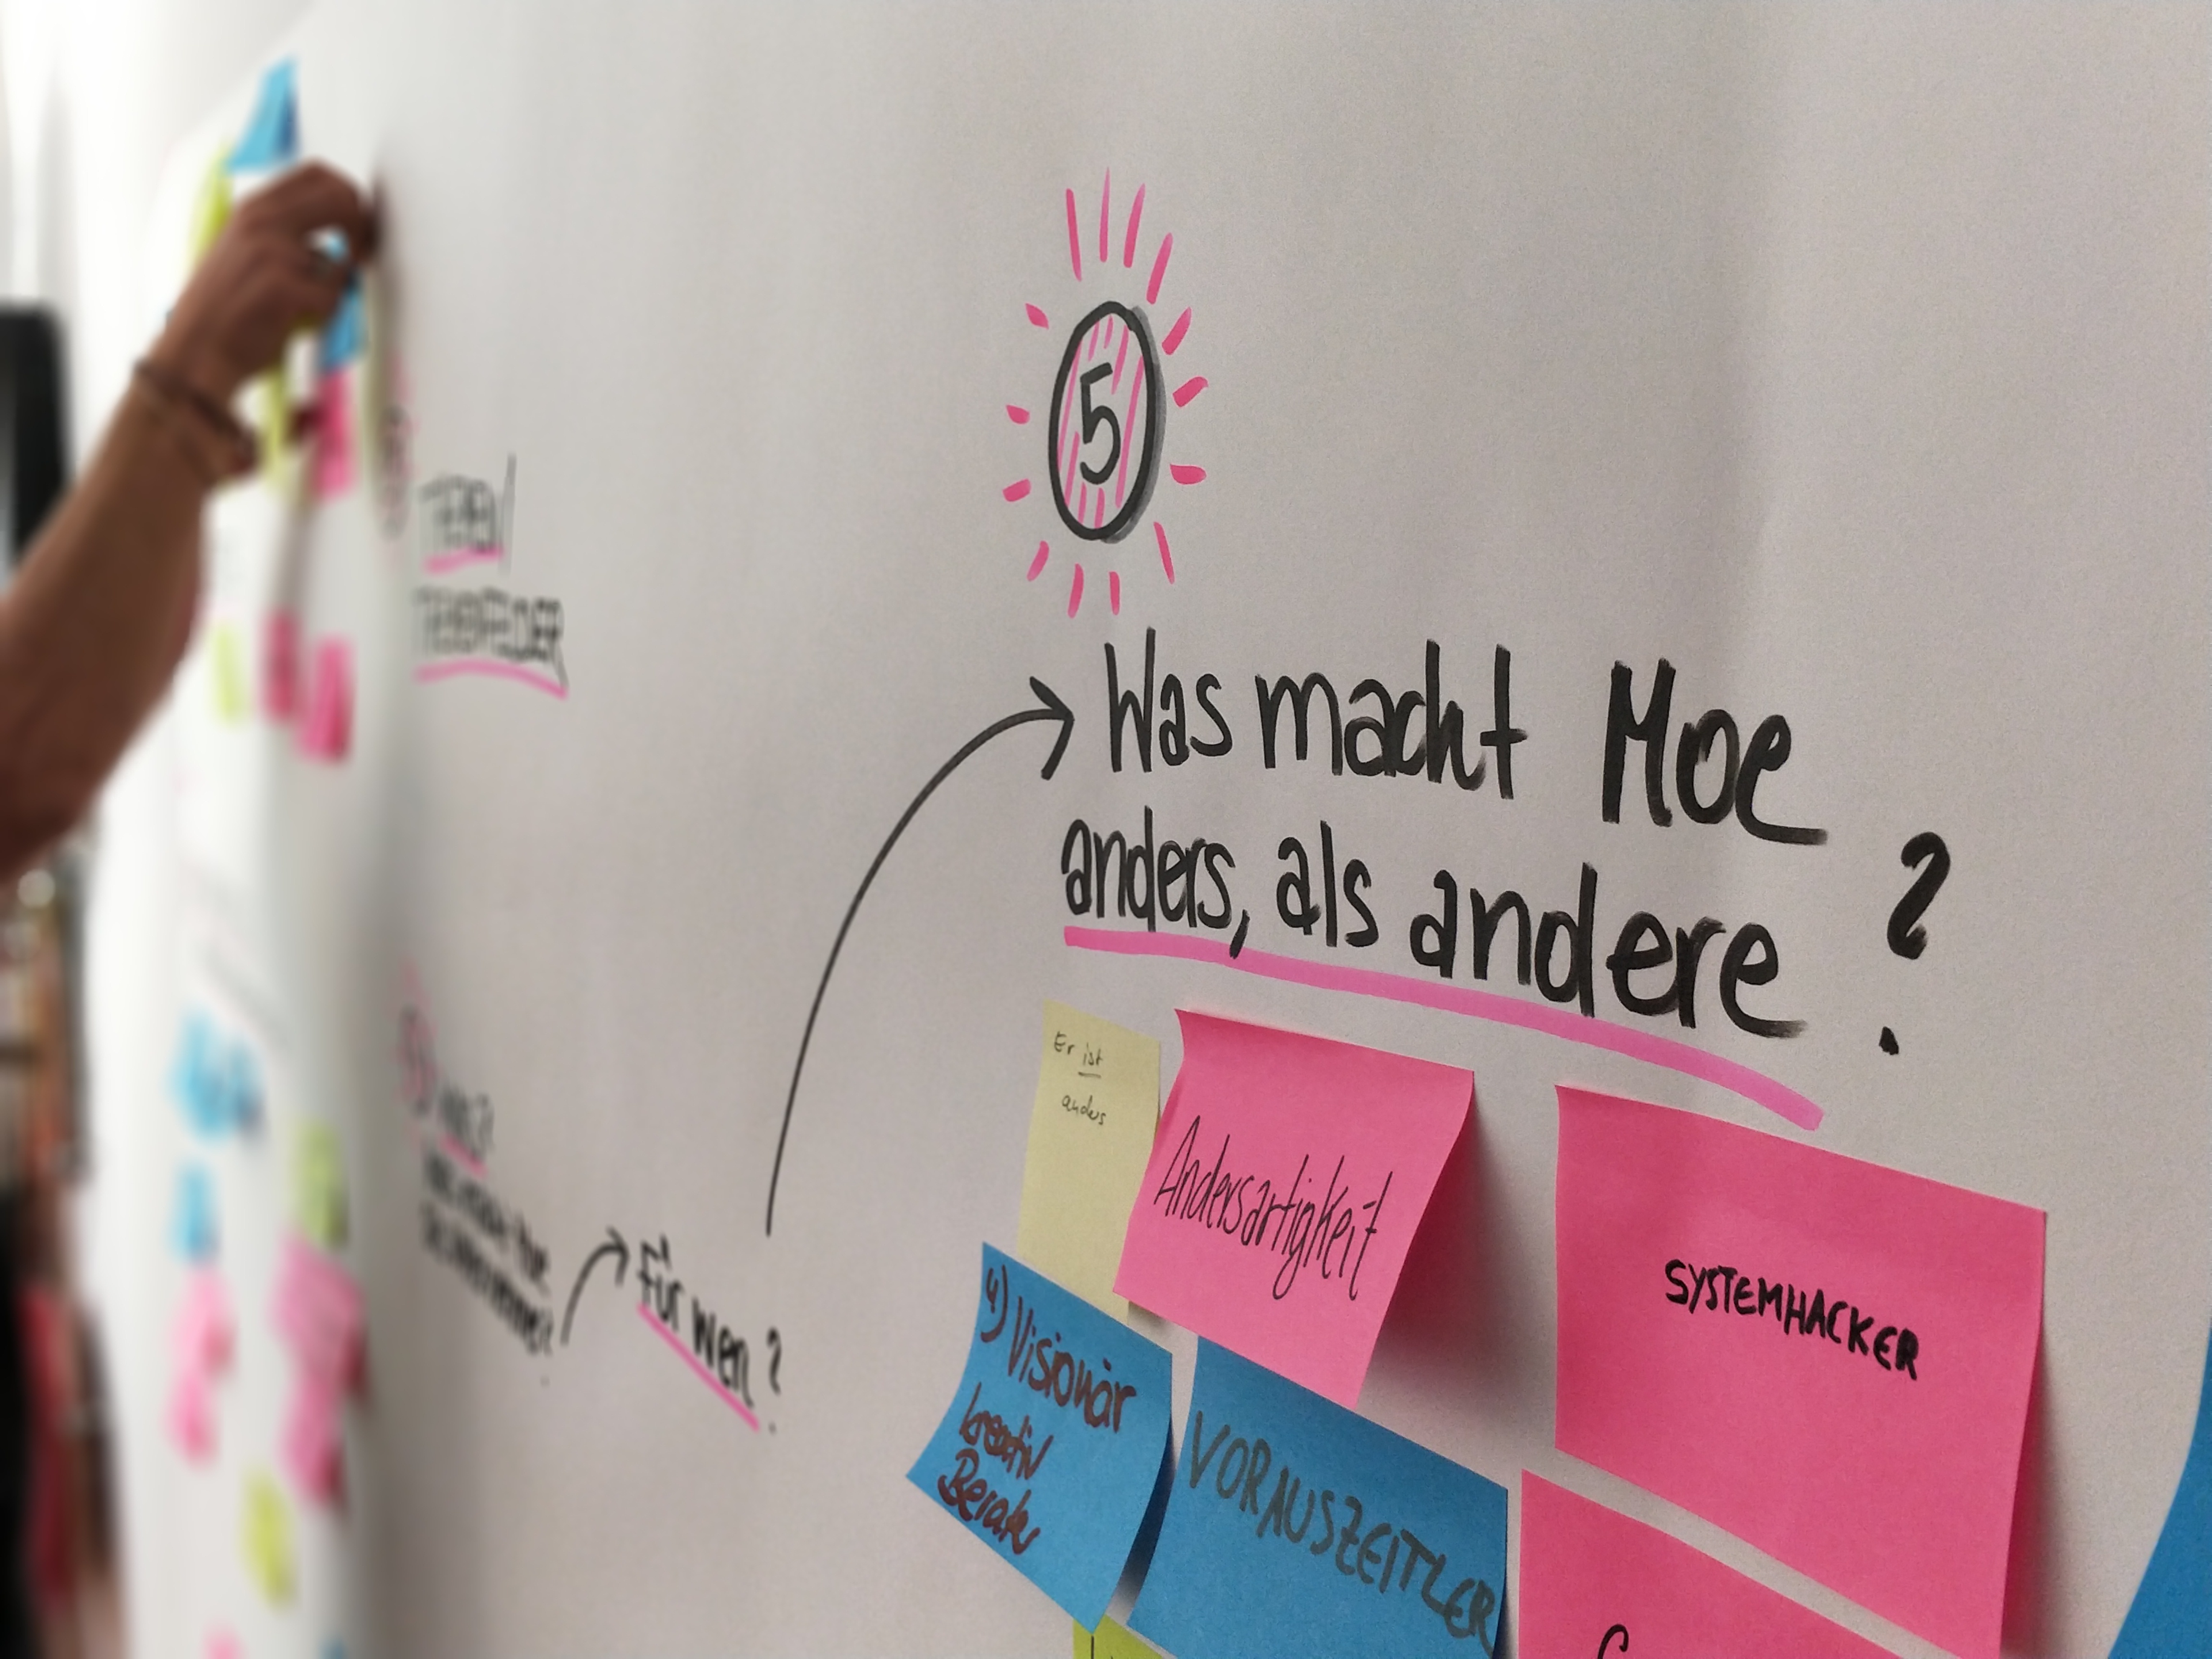 5
Was macht Moe
anders, als andere ?
Er ist
anders
Andersartigkeit
SYSTEMHACKER
4) Visionär
kreativ
Berater
VORAUSZEITLER
Für wen ?